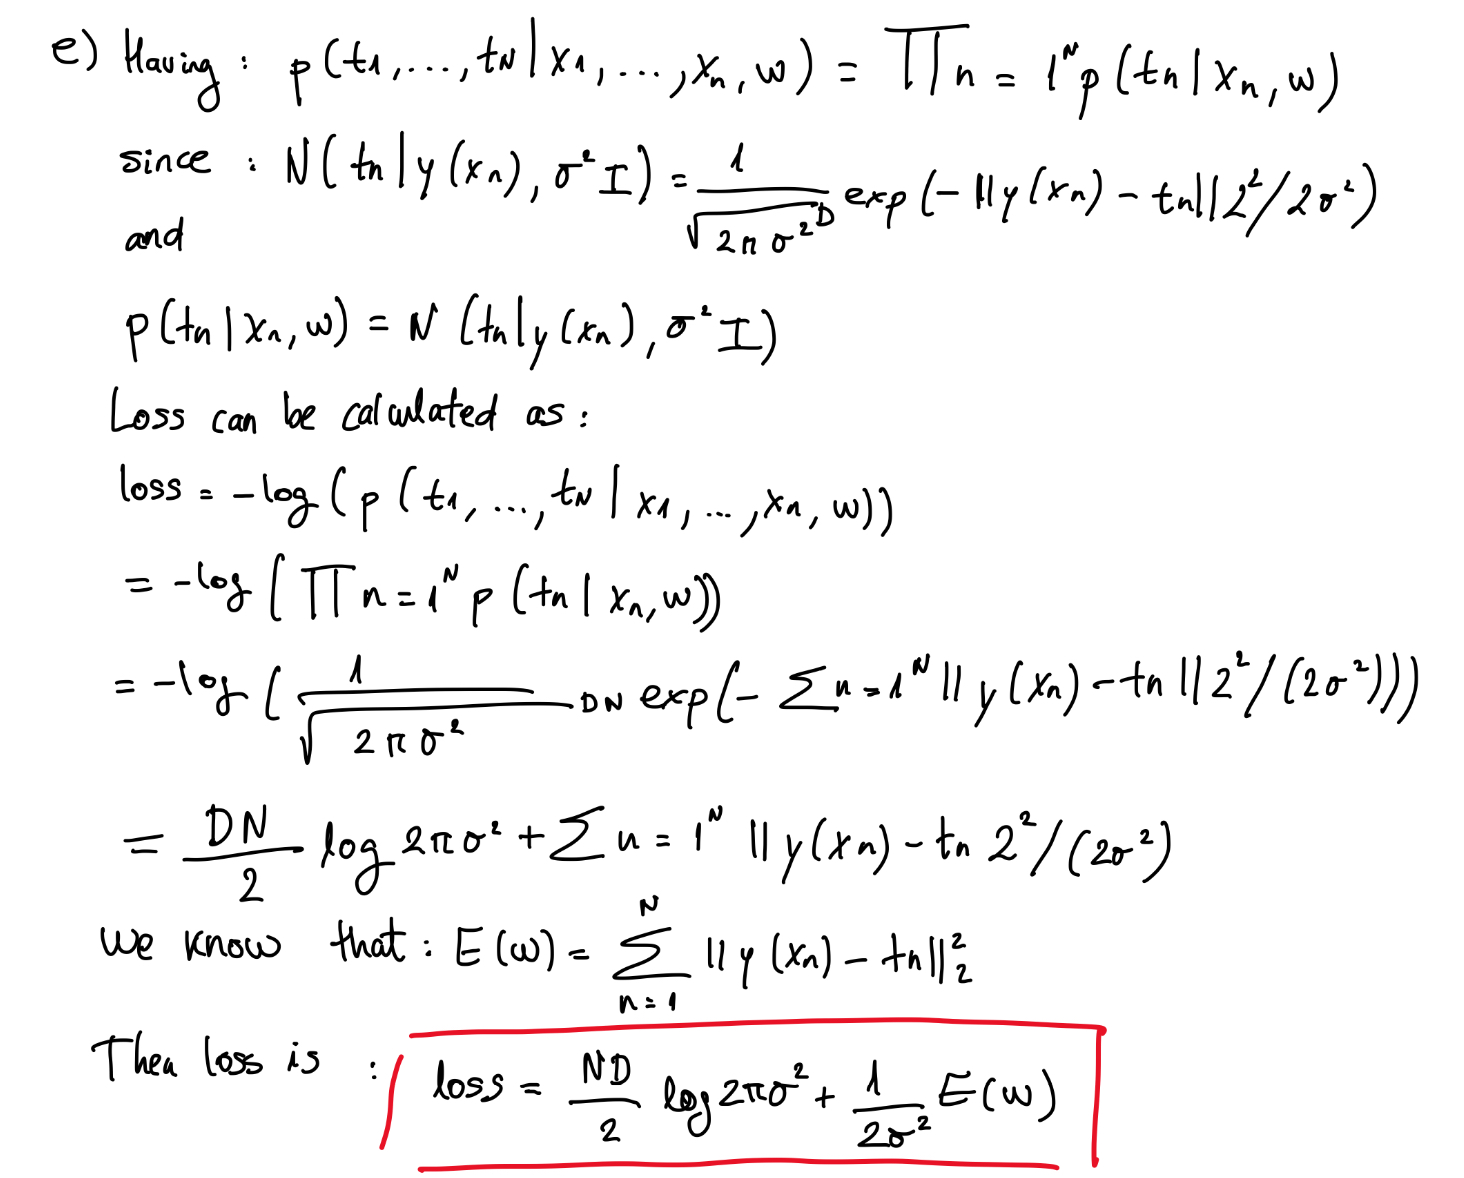 e) Having : p(t1,...,tN|x1,...,xn,w) = ∏n = 1^N p(tn|xn,w)
since : N(tn|y(xn),σ²I) = 1/√(2πσ²)^D exp(-||y(xn) - tn||2²/2σ²)
and
p(tn|xn,w) = N(tn|y(xn),σ²I)
Loss can be calculated as:
loss = -log(p(t1,...,tN|x1,...,xn,w))
= -log(∏n=1^N p(tn|xn,w))
= -log(1/√(2πσ²) DN exp(-∑n=1^N ||y(xn) - tn||2²/(2σ²)))
= DN/2 log 2πσ² + ∑n=1^N ||y(xn) - tn 2²/(2σ²)
we know that: E(w) = ∑_{n=1}^{N} ||y(xn) - tn||²₂
Then loss is : loss = ND/2 log 2πσ² + 1/2σ² E(w)